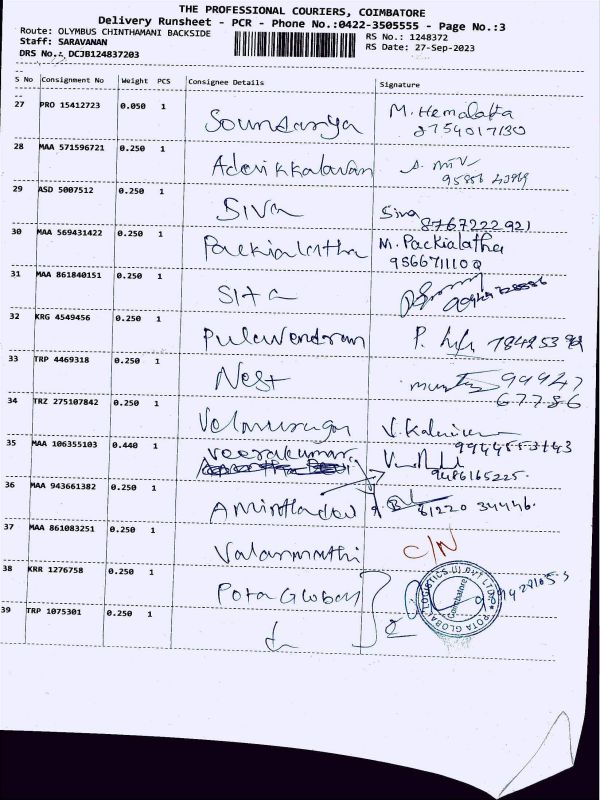 THE PROFESSIONAL COURIERS, COIMBATORE
Delivery Runsheet - PCR - Phone No.:0422-3505555 - Page No.:3
Route: OLYMBUS CHINTHAMANI BACKSIDE
RS No.: 1248372
Staff: SARAVANAN
RS Date: 27-Sep-2023
DRS No.: DCJB124837203
S No Consignment No Weight PCS Consignee Details Signature
27 PRO 15412723 0.050 1 Soundarya M. Hemalatta
8754017130
28 MAA 571596721 0.250 1 Adevikkalavan
29 ASD 5007512 0.250 1 Siva Siva
8767222921
30 MAA 569431422 0.250 1 Packialatha M. Packialatha
9566711102
31 MAA 861840151 0.250 1 Sita
32 KRG 4549456 0.250 1 Pulavendran P.
33 TRP 4469318 0.250 1 Nest 99947
67786
34 TRZ 275107842 0.250 1 Velmuruga
35 MAA 106355103 0.440 1 Veerakumar
9486165225.
36 MAA 943661382 0.250 1 81220 34446.
37 MAA 861083251 0.250 1 Valarmathi C/N
38 KRR 1276758 0.250 1 Pota Global
POTA GLOBAL LOGISTICS (I) PVT LTD
Coimbatore
39 TRP 1075301 0.250 1